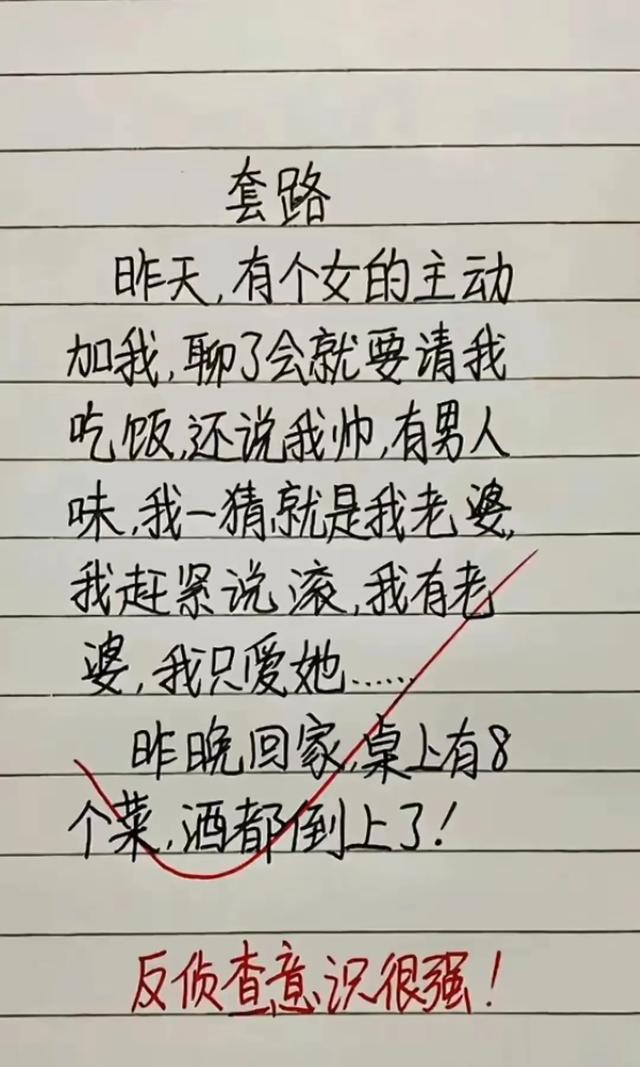 套路
昨天,有个女的主动
加我,聊了会就要请我
吃饭,还说我帅,有男人
味,我一猜就是我老婆,
我赶紧说滚,我有老
婆,我只爱她……
昨晚回家,桌上有8
个菜,酒都倒上了!
反侦查意识很强!